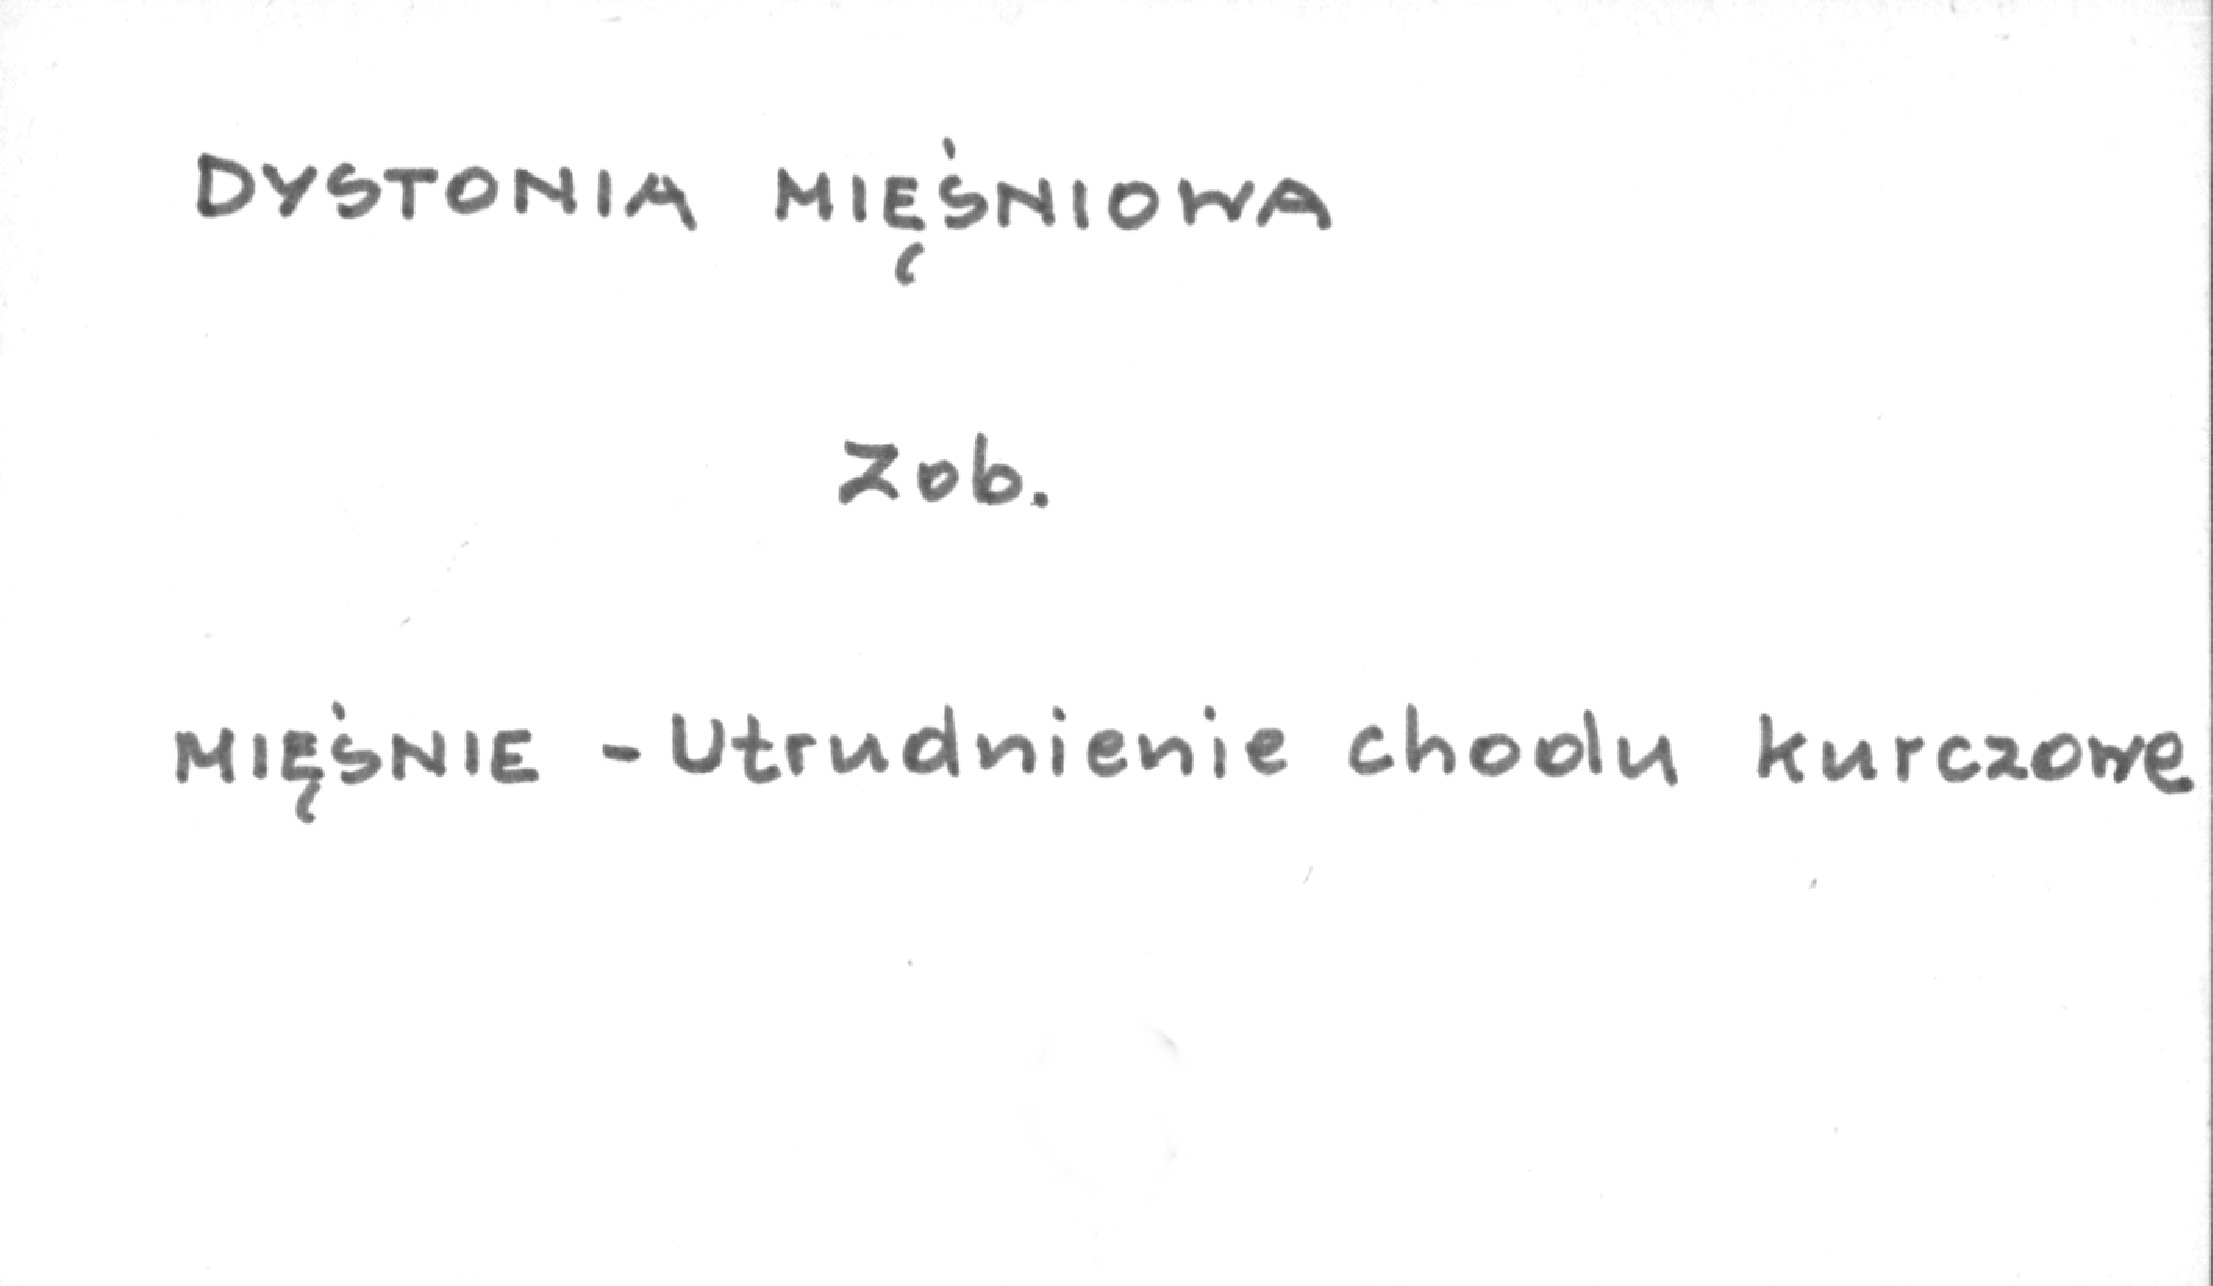 DYSTONIA MIĘŚNIOWA
Zob.
MIĘŚNIE - Utrudnienie chodu kurczowe